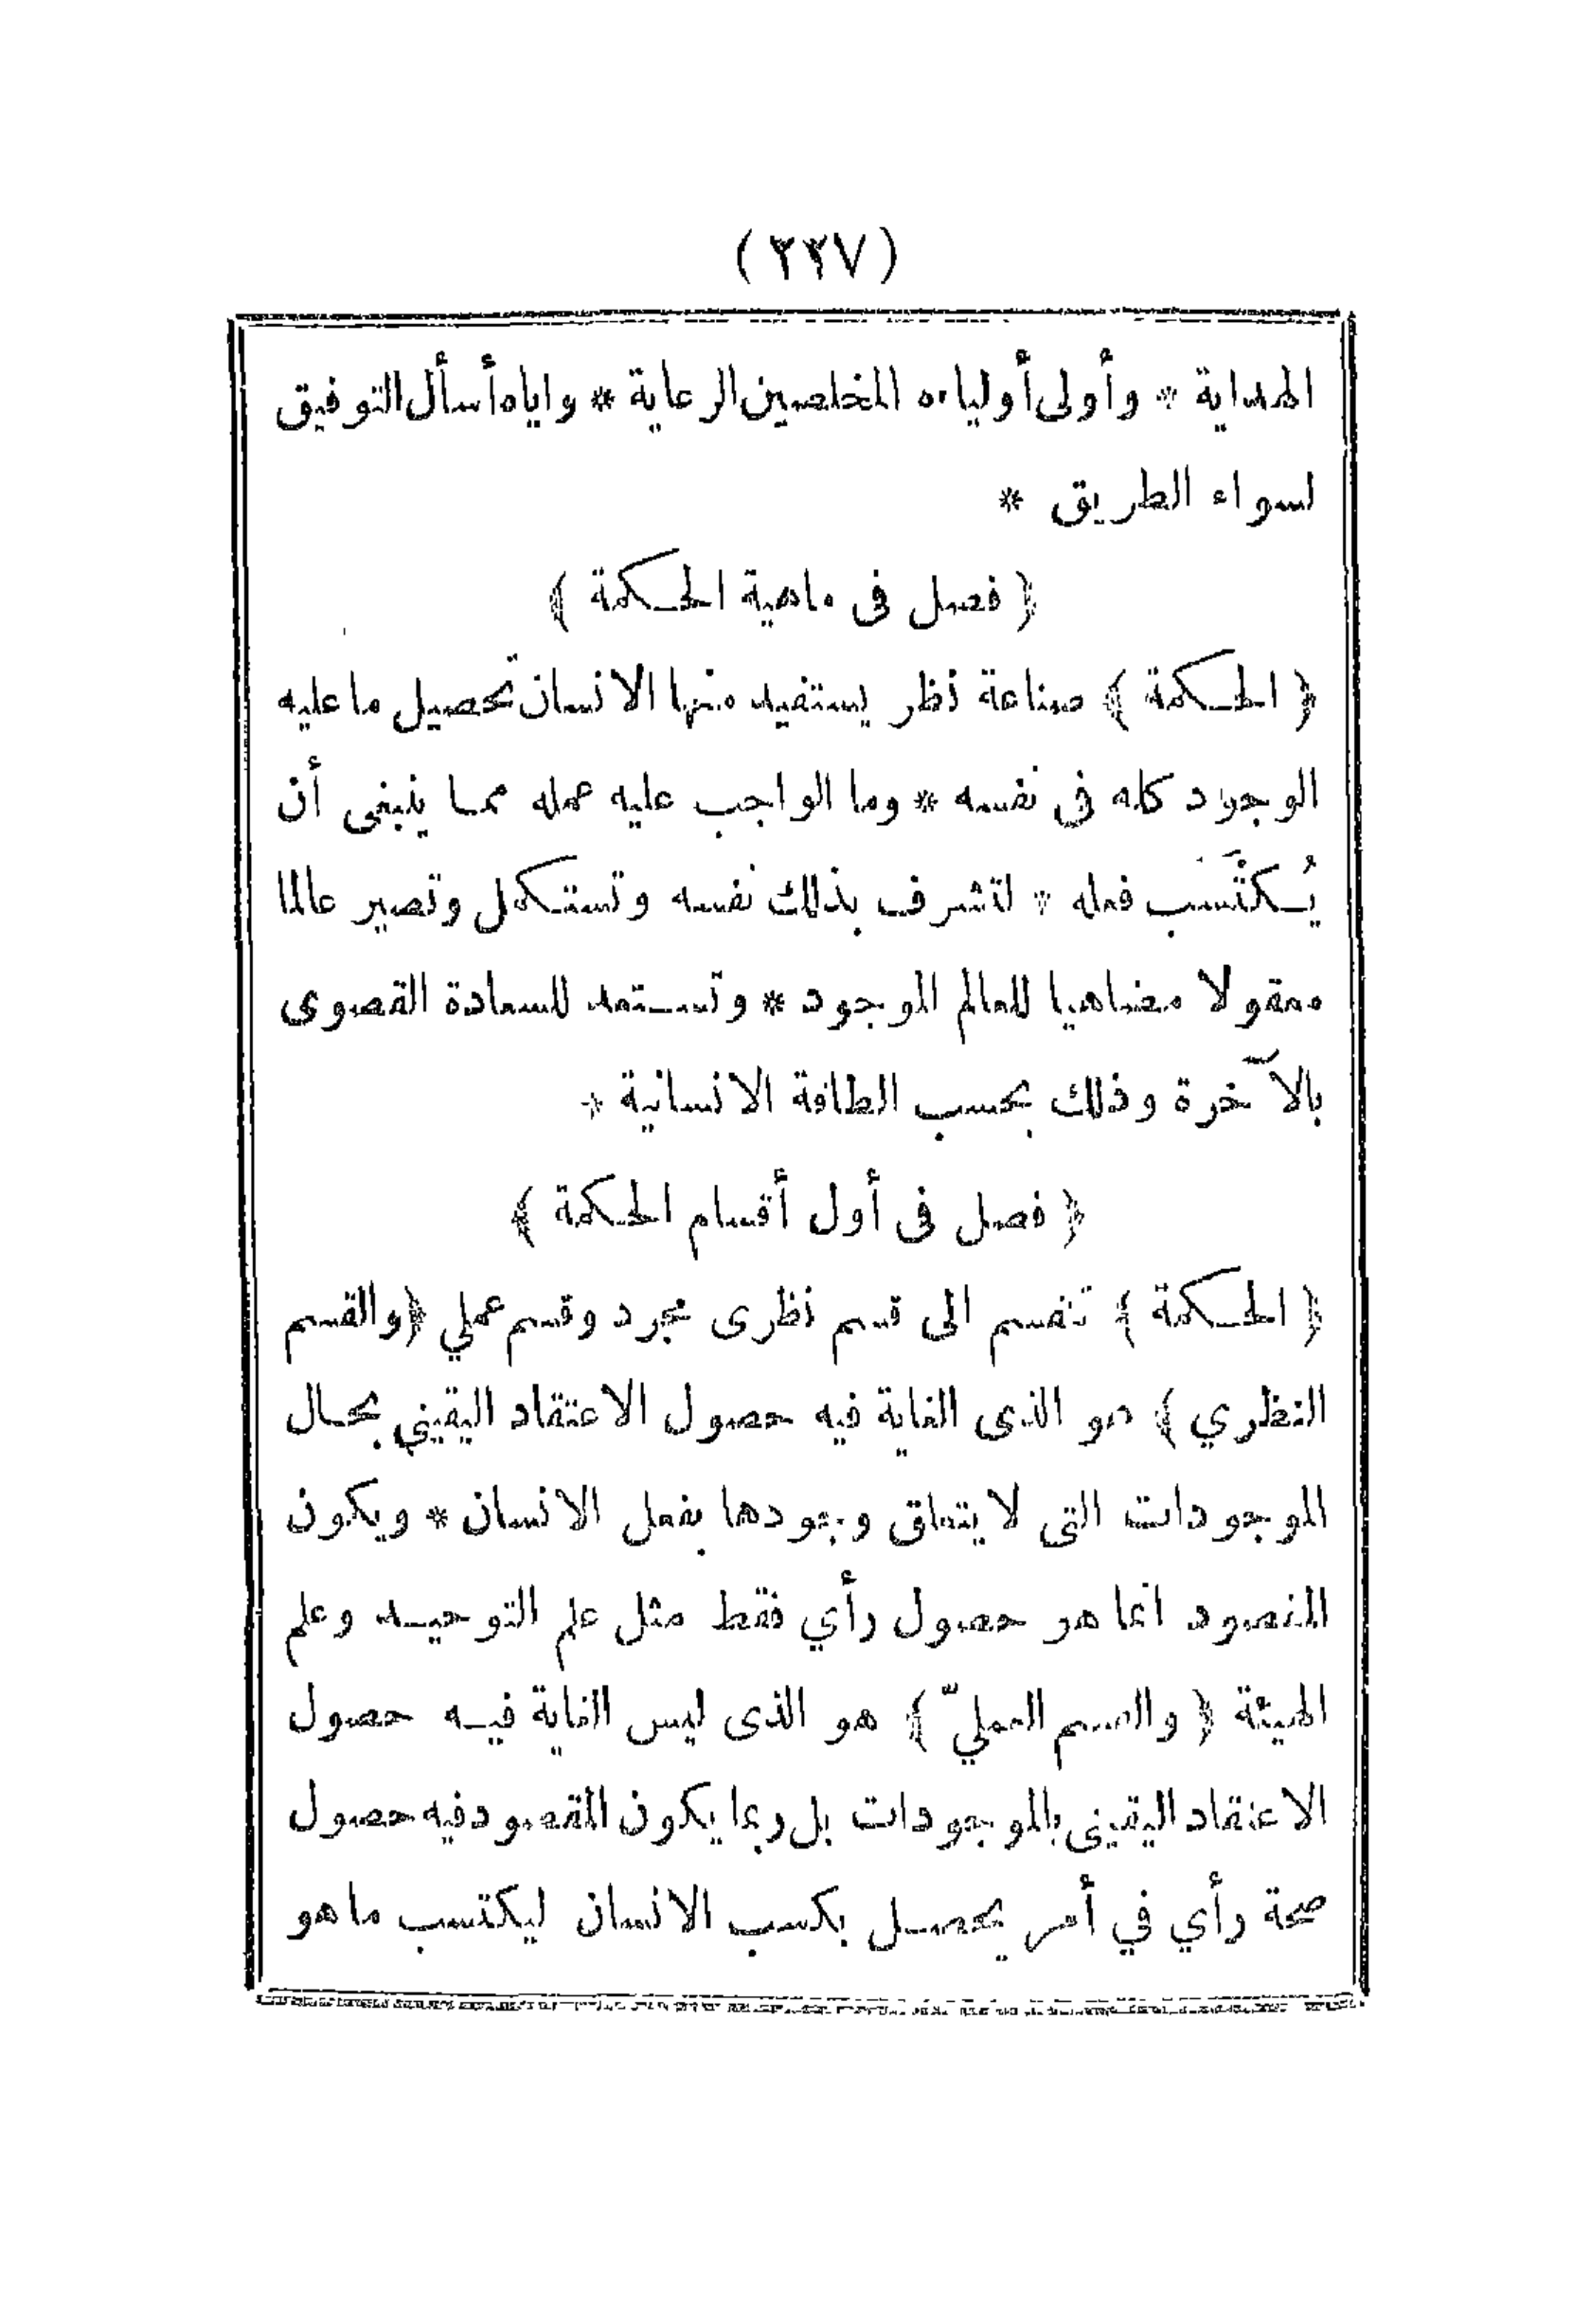 (٢٢٧)
الهداية * وأولى أولياءه المخلصين الرعاية * واياه أسأل التوفيق
لسواء الطريق *
﴿ فصل فى ماهية الحكمة ﴾
﴿ الحكمة ﴾ صناعة نظر يستفيد منها الانسان تحصيل ما عليه
الوجود كله فى نفسه * وما الواجب عليه عمله مما ينبغى أن
يُكتَسَب فعله * لتشرف بذلك نفسه وتستكمل وتصير عالما
معقولا مضاهيا للعالم الموجود * وتستعد للسعادة القصوى
بالآخرة وذلك بحسب الطاقة الانسانية *
﴿ فصل فى أول أقسام الحكمة ﴾
﴿ الحكمة ﴾ تنقسم الى قسم نظرى مجرد وقسم عملي ﴿ والقسم
النظري ﴾ هو الذى الغاية فيه حصول الاعتقاد اليقيني بحال
الموجودات التى لا يتعلق وجودها بفعل الانسان * ويكون
المقصود انما هو حصول رأي فقط مثل علم التوحيد وعلم
الهيئة ﴿ والقسم العمليّ ﴾ هو الذى ليس الغاية فيه حصول
الاعتقاد اليقينى بالموجودات بل ربما يكون المقصود فيه حصول
صحة رأي في أمر يحصل بكسب الانسان ليكتسب ما هو